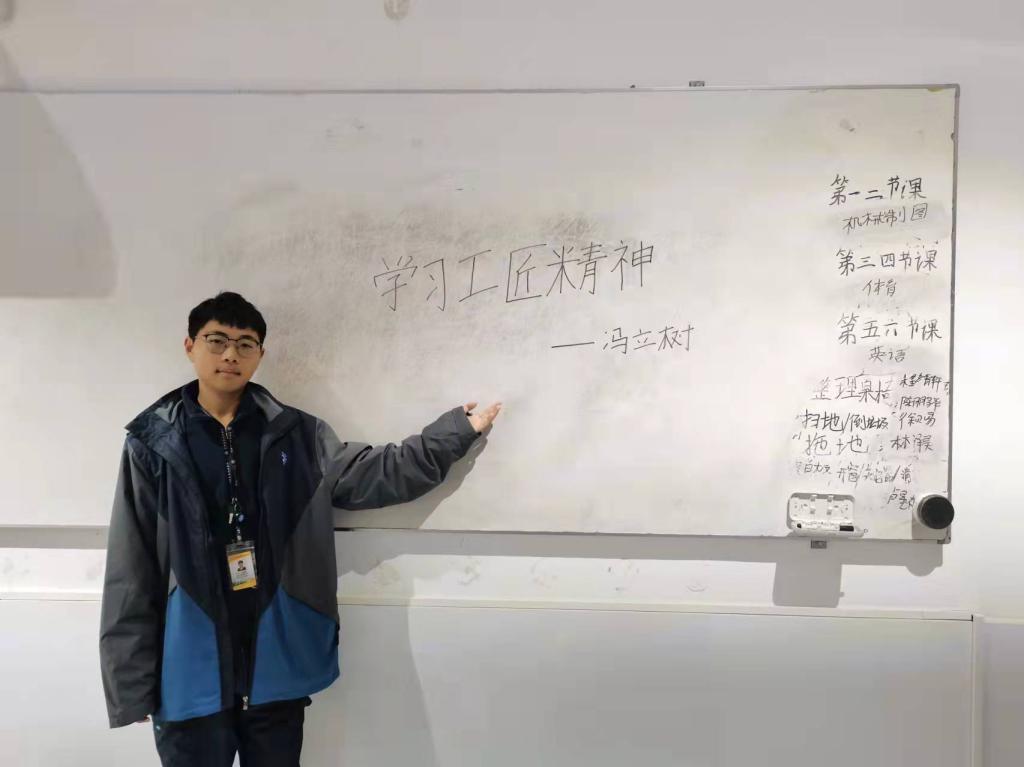 学习工匠精神
——冯立树
第一二节课
机械制图
第三四节课
体育
第五六节课
英语
整理桌椅
扫地/倒垃圾
拖地：林